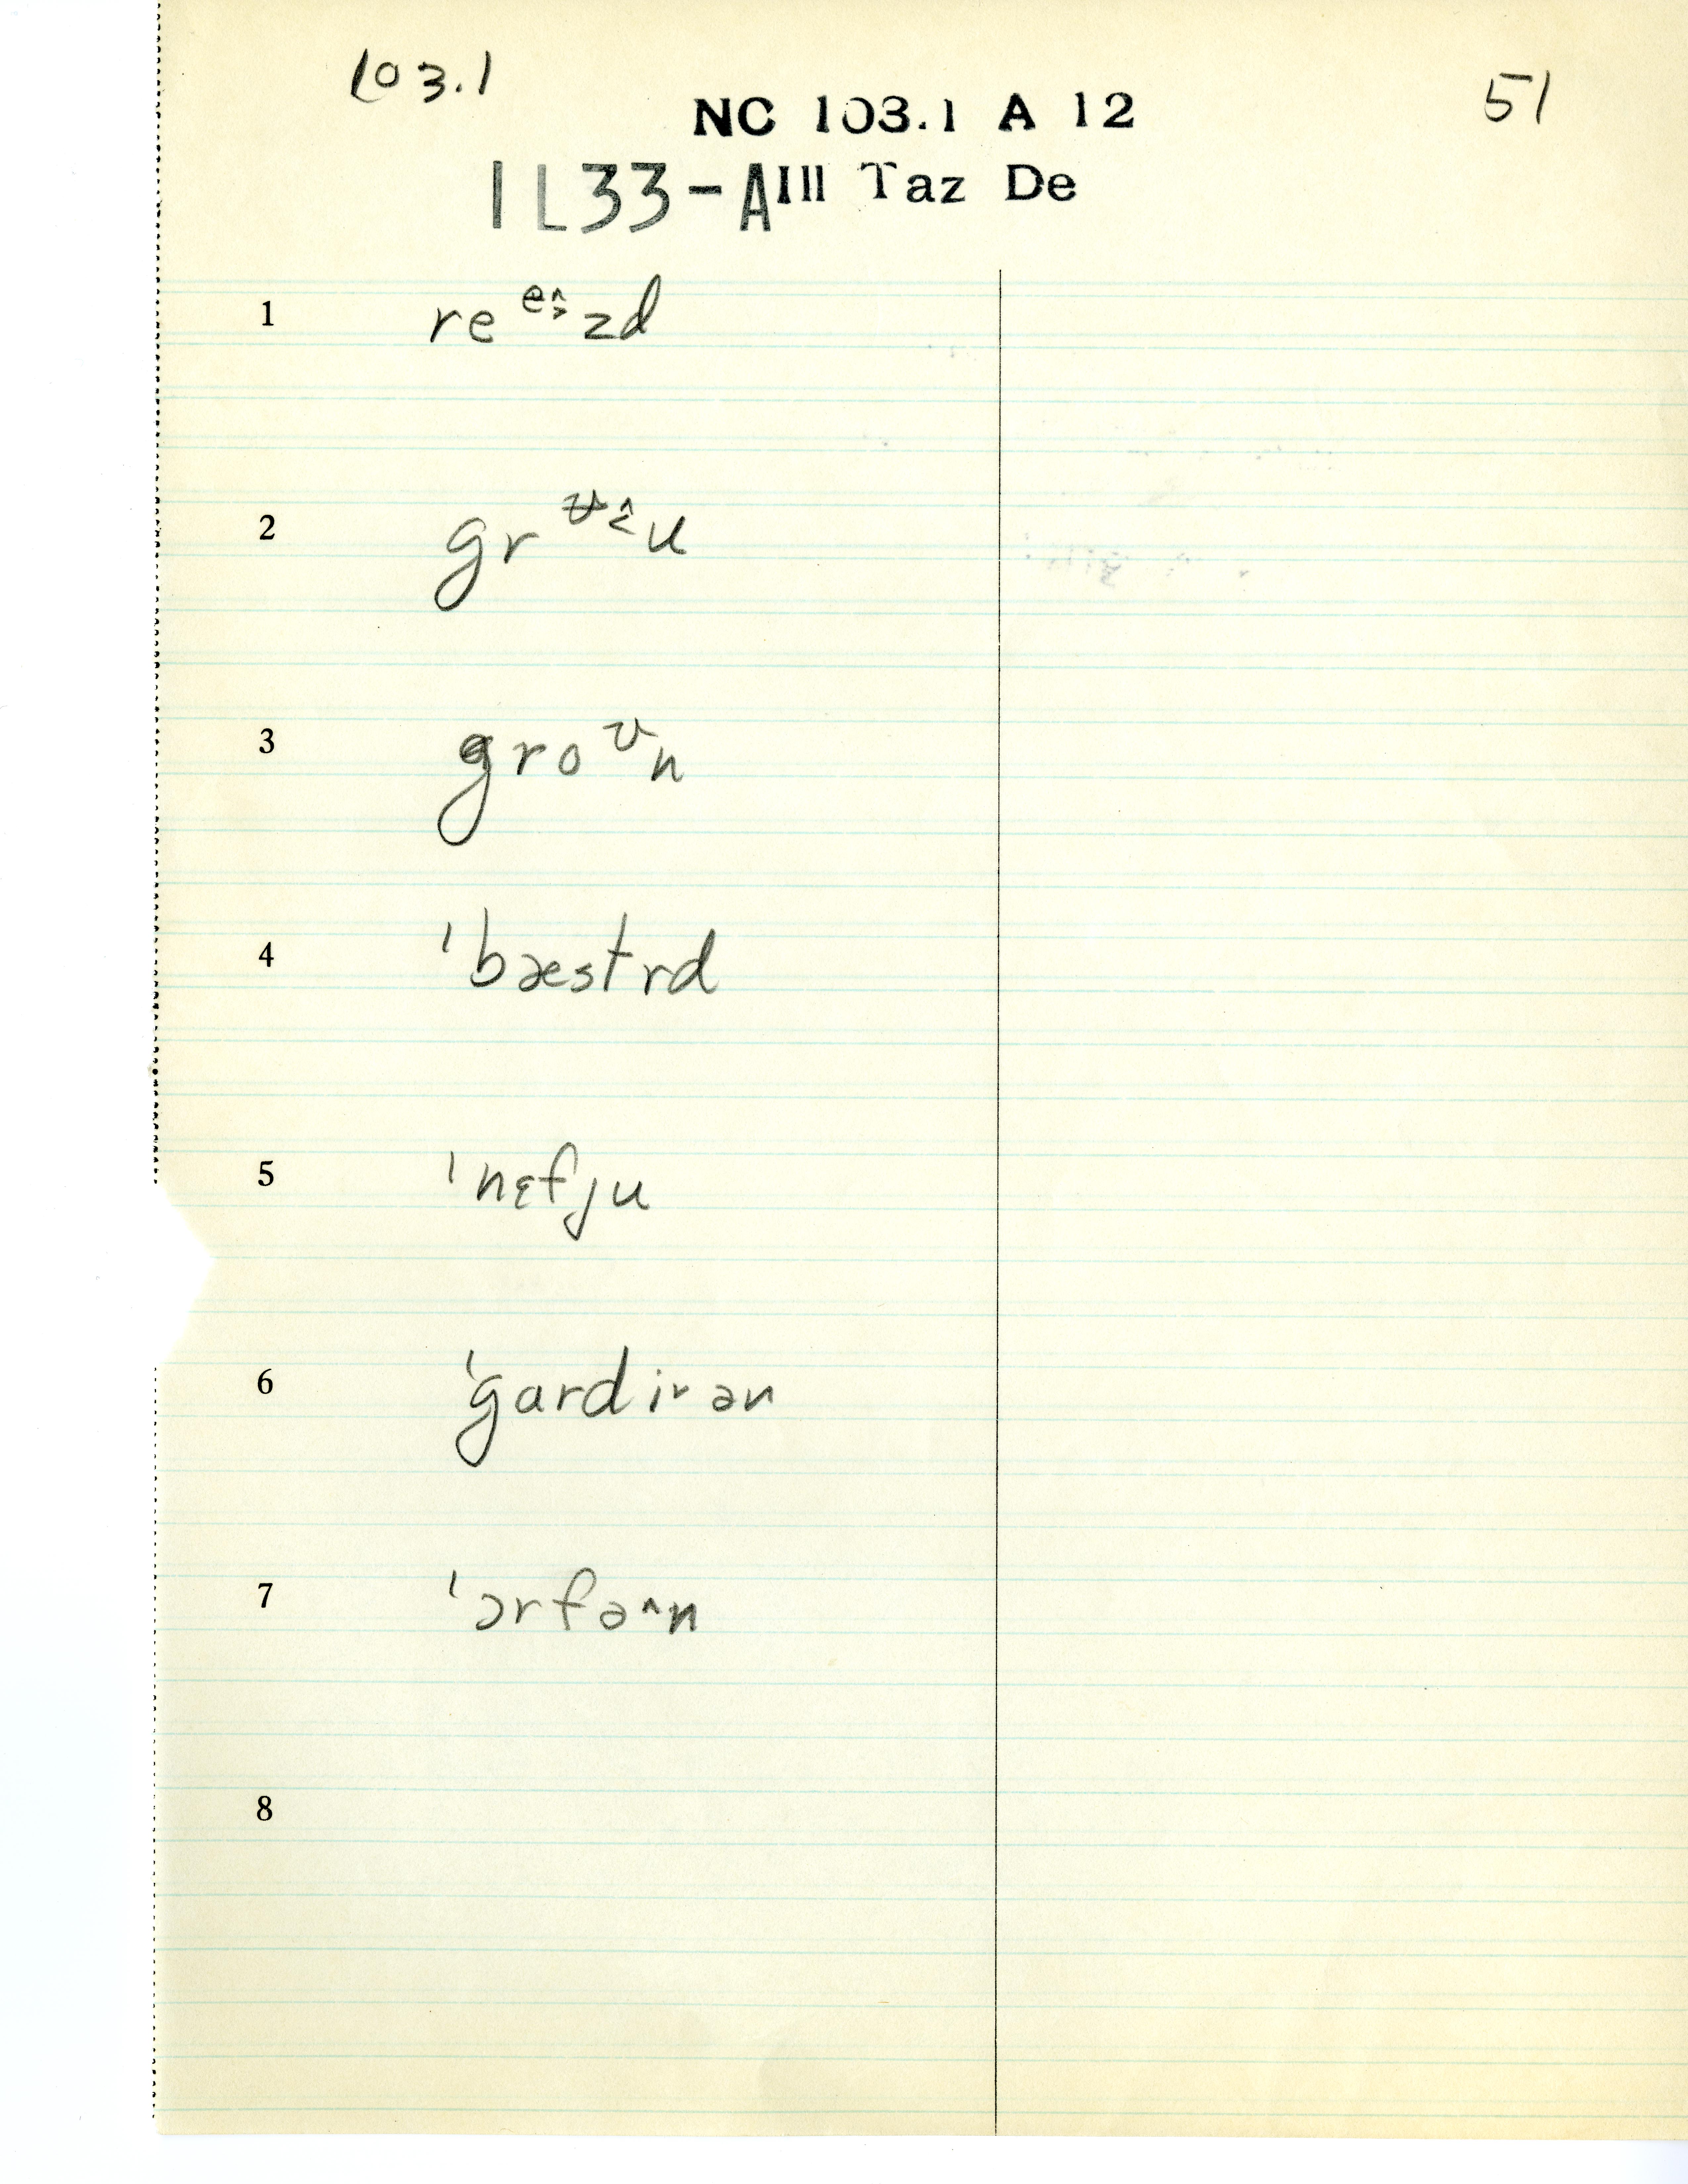 103.1
51
NC 103.1 A 12
IL33-A Ill Taz De
1 re ᵉ^˃ zd
2 gr ᶶ^˂ u
3 groᶹn
4 ˈbæstrd
5 ˈnɛfju
6 ˈgardi˅ən
7 ˈɔrfə^n
8